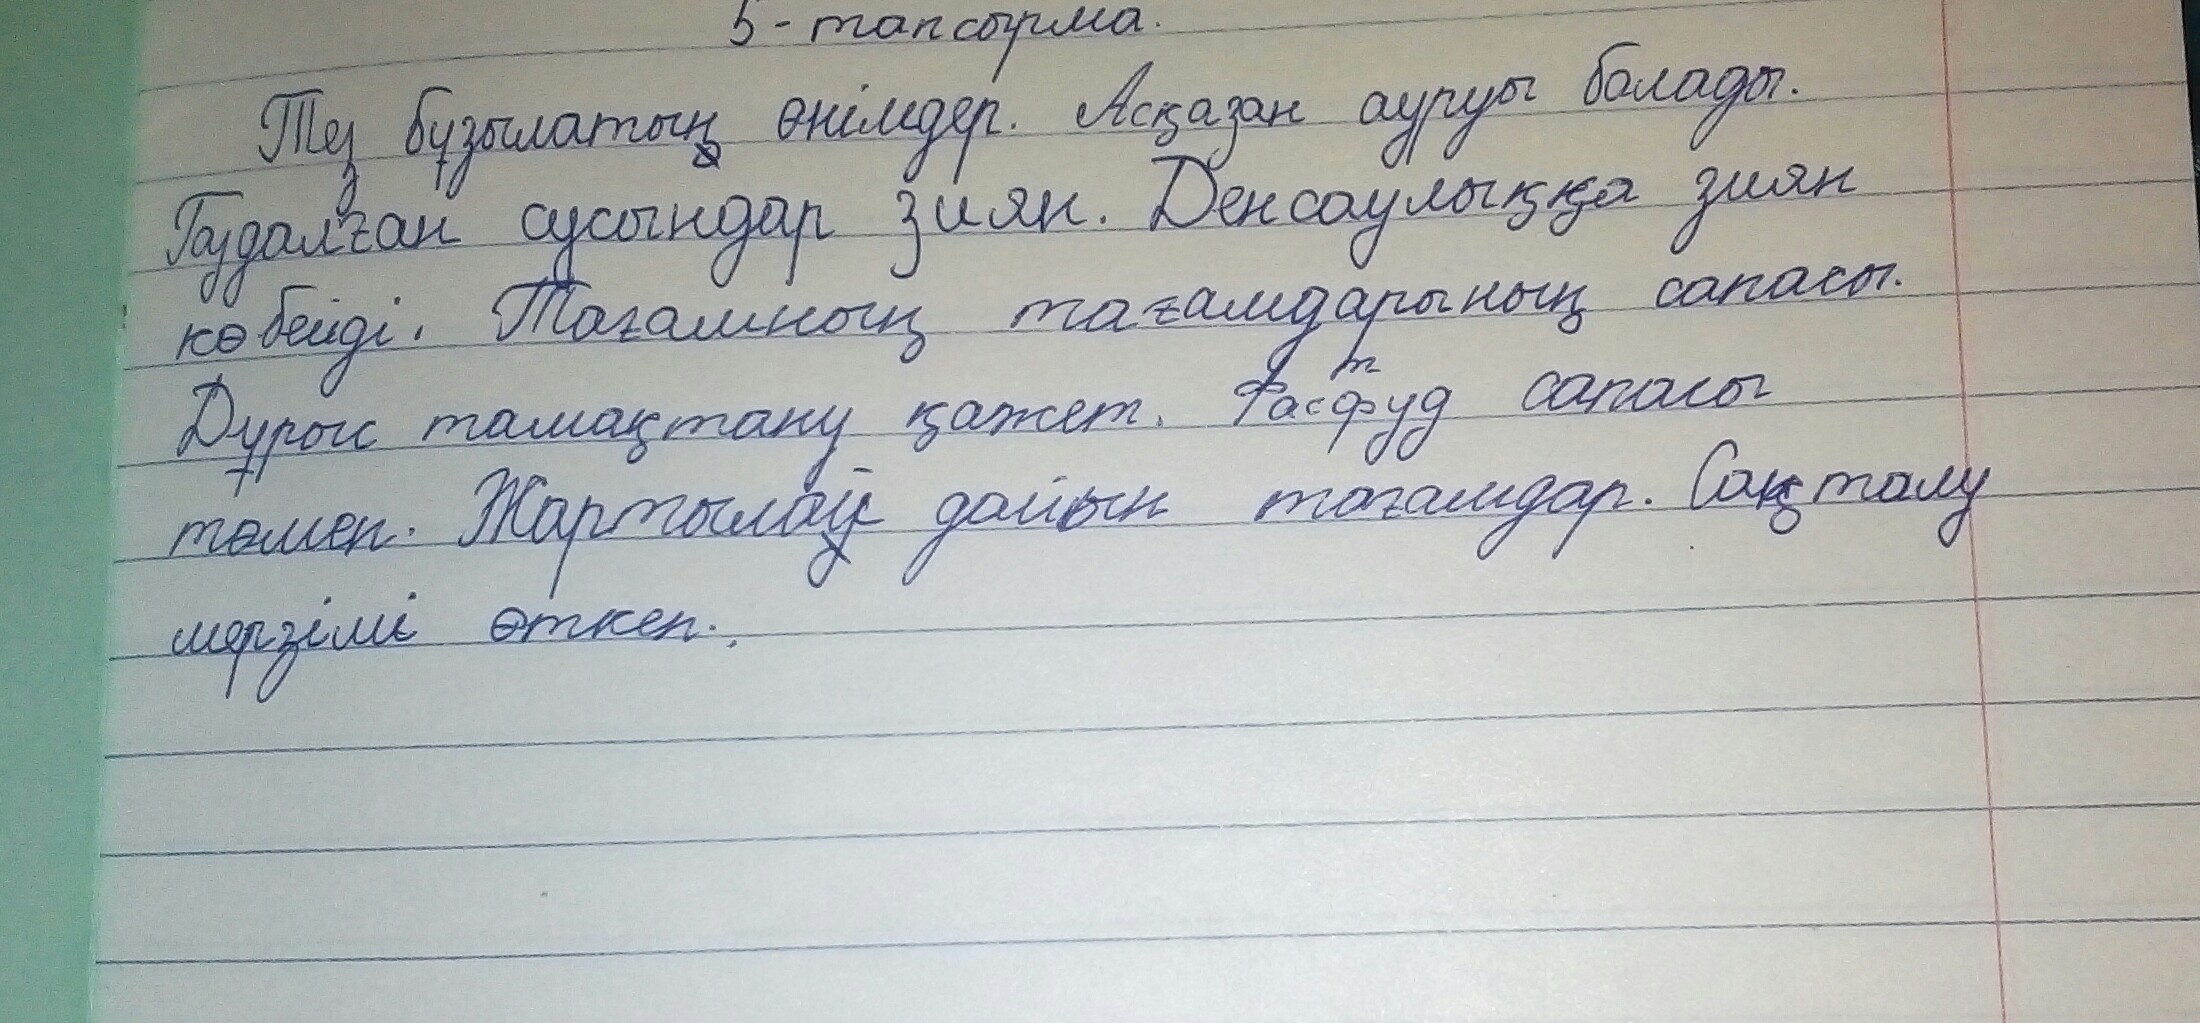 5-тапсырма.
Тез бұзылатын өнімдер. Асқазан ауруы болады.
Газдалған сусындар зиян. Денсаулыққа зиян
көбейді. Тағамның тағамдарының сапасы.
Дұрыс тамақтану қажет. Фастфуд сапасы
төмен. Жартылай дайын тағамдар. Сақталу
мерзімі өткен.